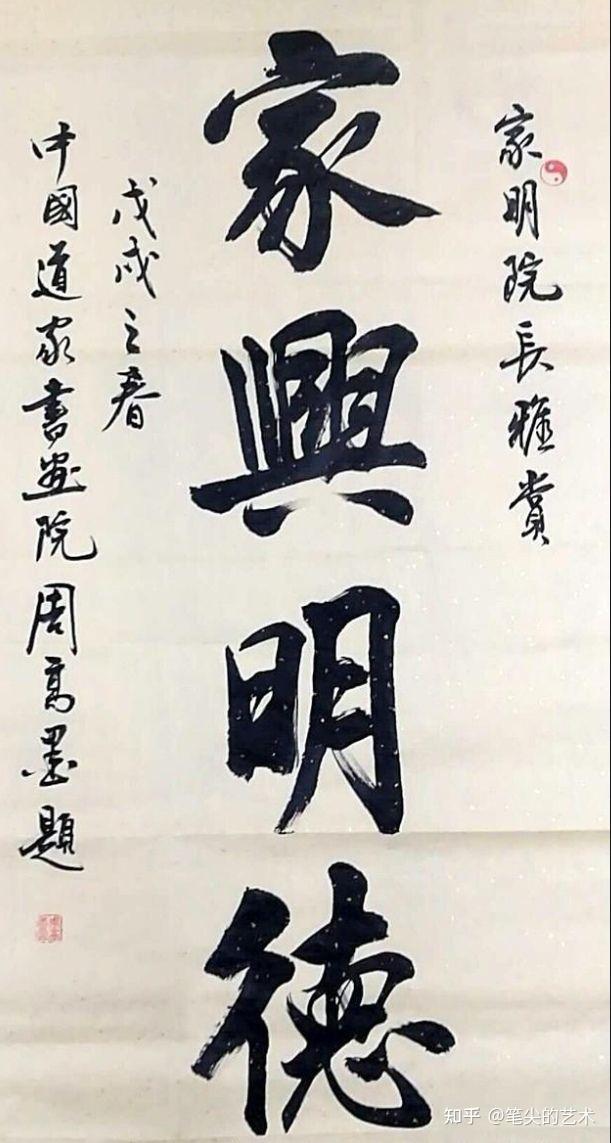 家明院長雅賞
家興明德
戊戌之春
中國道家書画院周高墨題
知乎 @笔尖的艺术